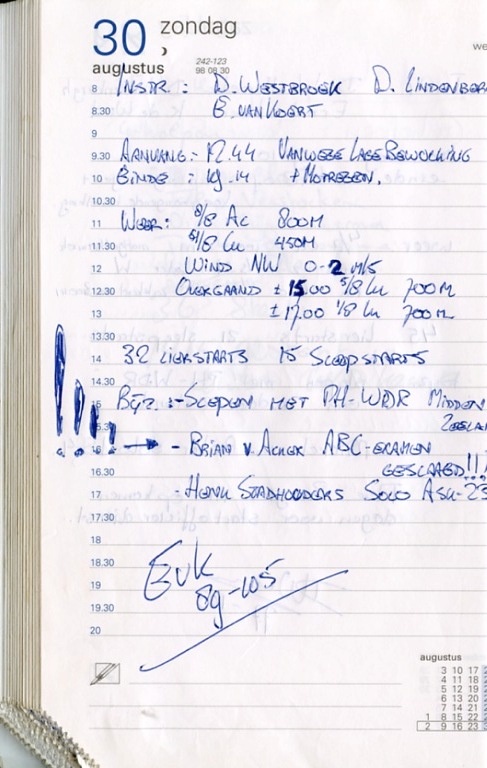 30 zondag
augustus
242-123
98 08 30
we
8 INSTR.: D. WESTBROEK D. LINDENBER
8.30 E. VAN KOERT
9
9.30 AANVANG: 12.44 VANWEGE LAGE BEWOLKING
10 EINDE: 19.14 + MOTREGEN.
10.30
11 WEER: 8/8 AC 800M
11.30 /8 Cu 450M
12 WIND NW 0-2 M/S
12.30 OVERGAAND ± 15.00 5/8 Cu 700M
13 ± 17.00 1/8 Cu 700M
13.30
14 32 LIERSTARTS 15 SLEEPSTARTS
14.30
15 BYZ.: - SLEPEN MET PH-WDR MIDDEN
ZEELA
!!!! → - BRIAN V. ACKER ABC-EXAMEN
16.30 GESLAAGD!!!
17 - HENK STADHOUDERS SOLO ASK-23
17.30
18
18.30 EvK
19 89-105
19.30
20
augustus
3 10 17
4 11 18
5 12 19
6 13 20
7 14 21
1 8 15 22
2 9 16 23